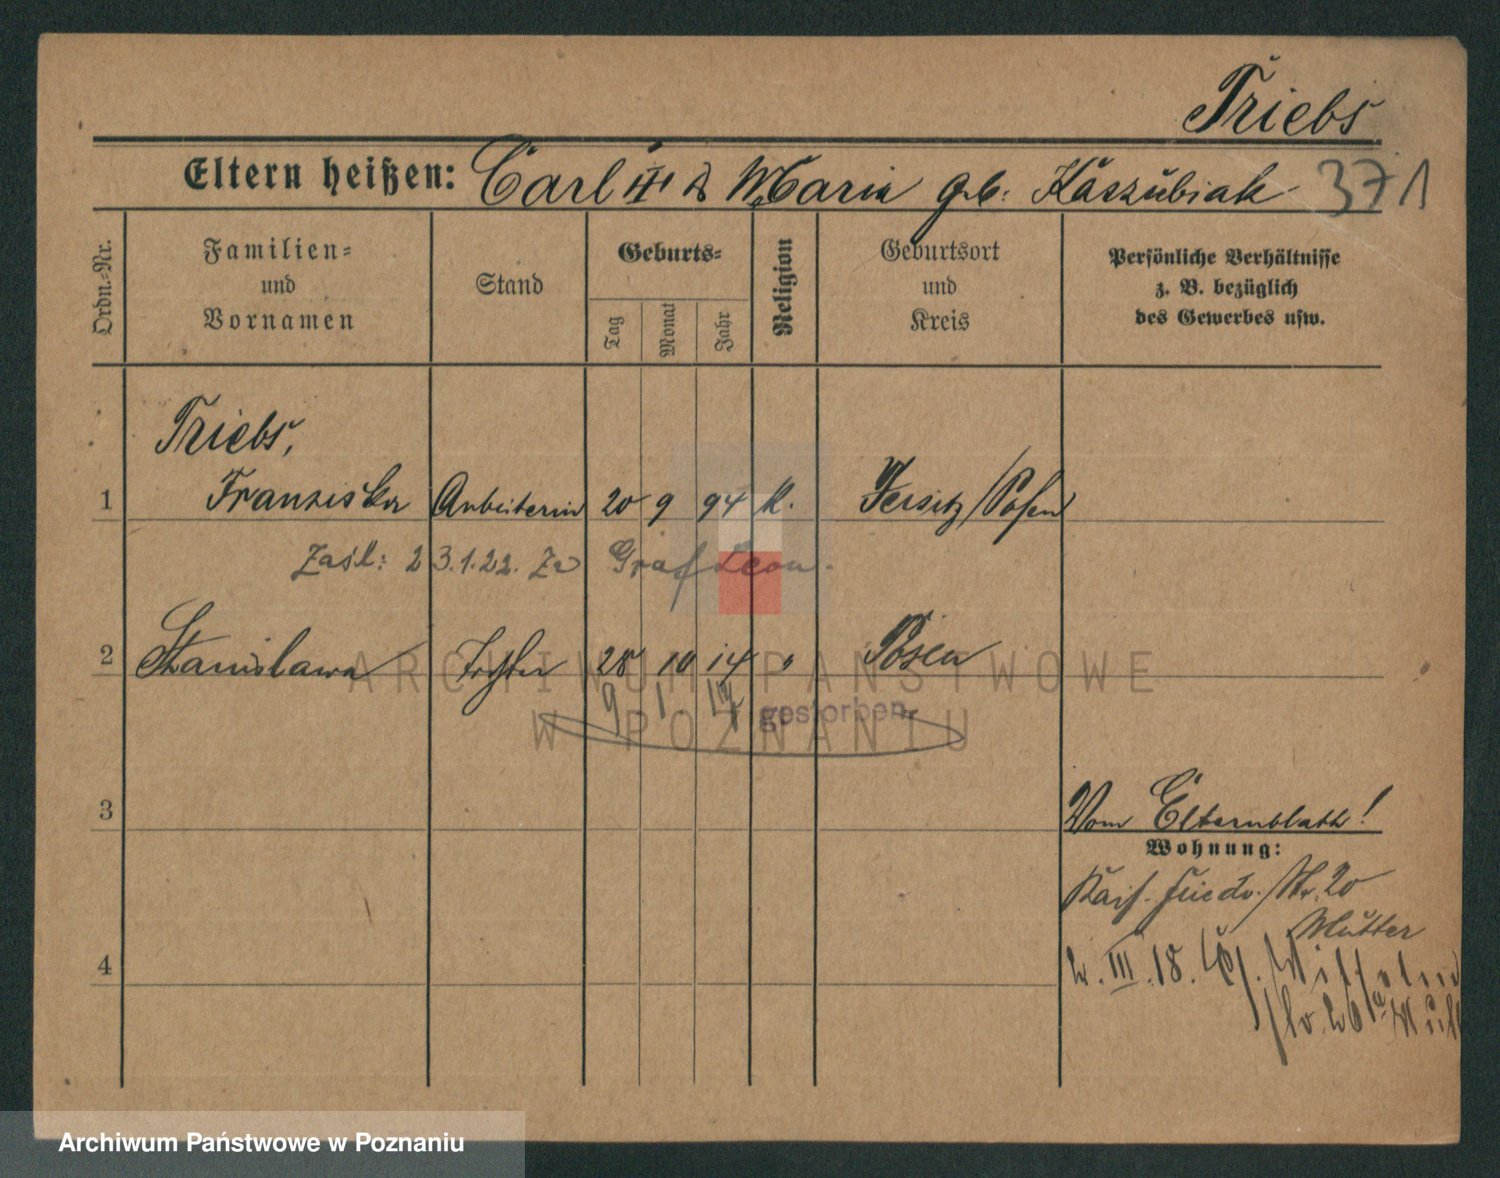 Triebs
Eltern heißen: Carl III & Maria geb. Kaszubiak 371
Ordn.-Nr.
Familien- und Vornamen
Stand
Geburts-
Tag
Monat
Jahr
Religion
Geburtsort und Kreis
Persönliche Verhältnisse z. B. bezüglich des Gewerbes usw.
Triebs,
1 Franziska Arbeiterin 20 9 94 K. Jersitz/Posen
23.1.22. Graf Leon.
2 Stanislawa Tochter 28 10 14 " Posen
9 1. gestorben
ARCHIWUM PAŃSTWOWE
W POZNANIU
3
Vom Elternblatt!
Wohnung:
Kais. Friedr. Str. 20
Mutter
4
III. 18.
Archiwum Państwowe w Poznaniu